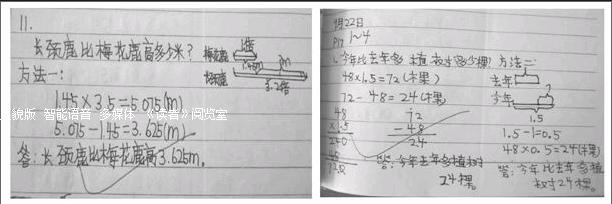 11.
长颈鹿比梅花鹿高多少米?
方法一:
梅花鹿
1倍
1.45m
?m
长颈鹿
3.5倍
1.45×3.5=5.075(m)
5.075-1.45=3.625(m)
答:长颈鹿比梅花鹿高3.625m。
貌版 智能语音 多媒体 《读者》阅览室
月22日
P17 1~4
1、今年比去年多植树多少棵? 方法二:
48×1.5=72(棵)
72-48=24(棵)
48
×1.5
240
48
72.0
72
-48
24
答:今年比去年多植树
24棵。
去年
今年
?
1.5
1.5-1=0.5
48×0.5=24(棵)
答:今年比去年多植
树24棵。